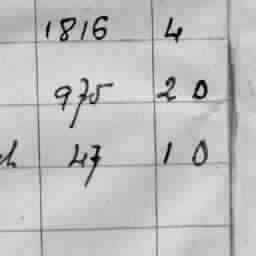 1816 4
975 20
47 10